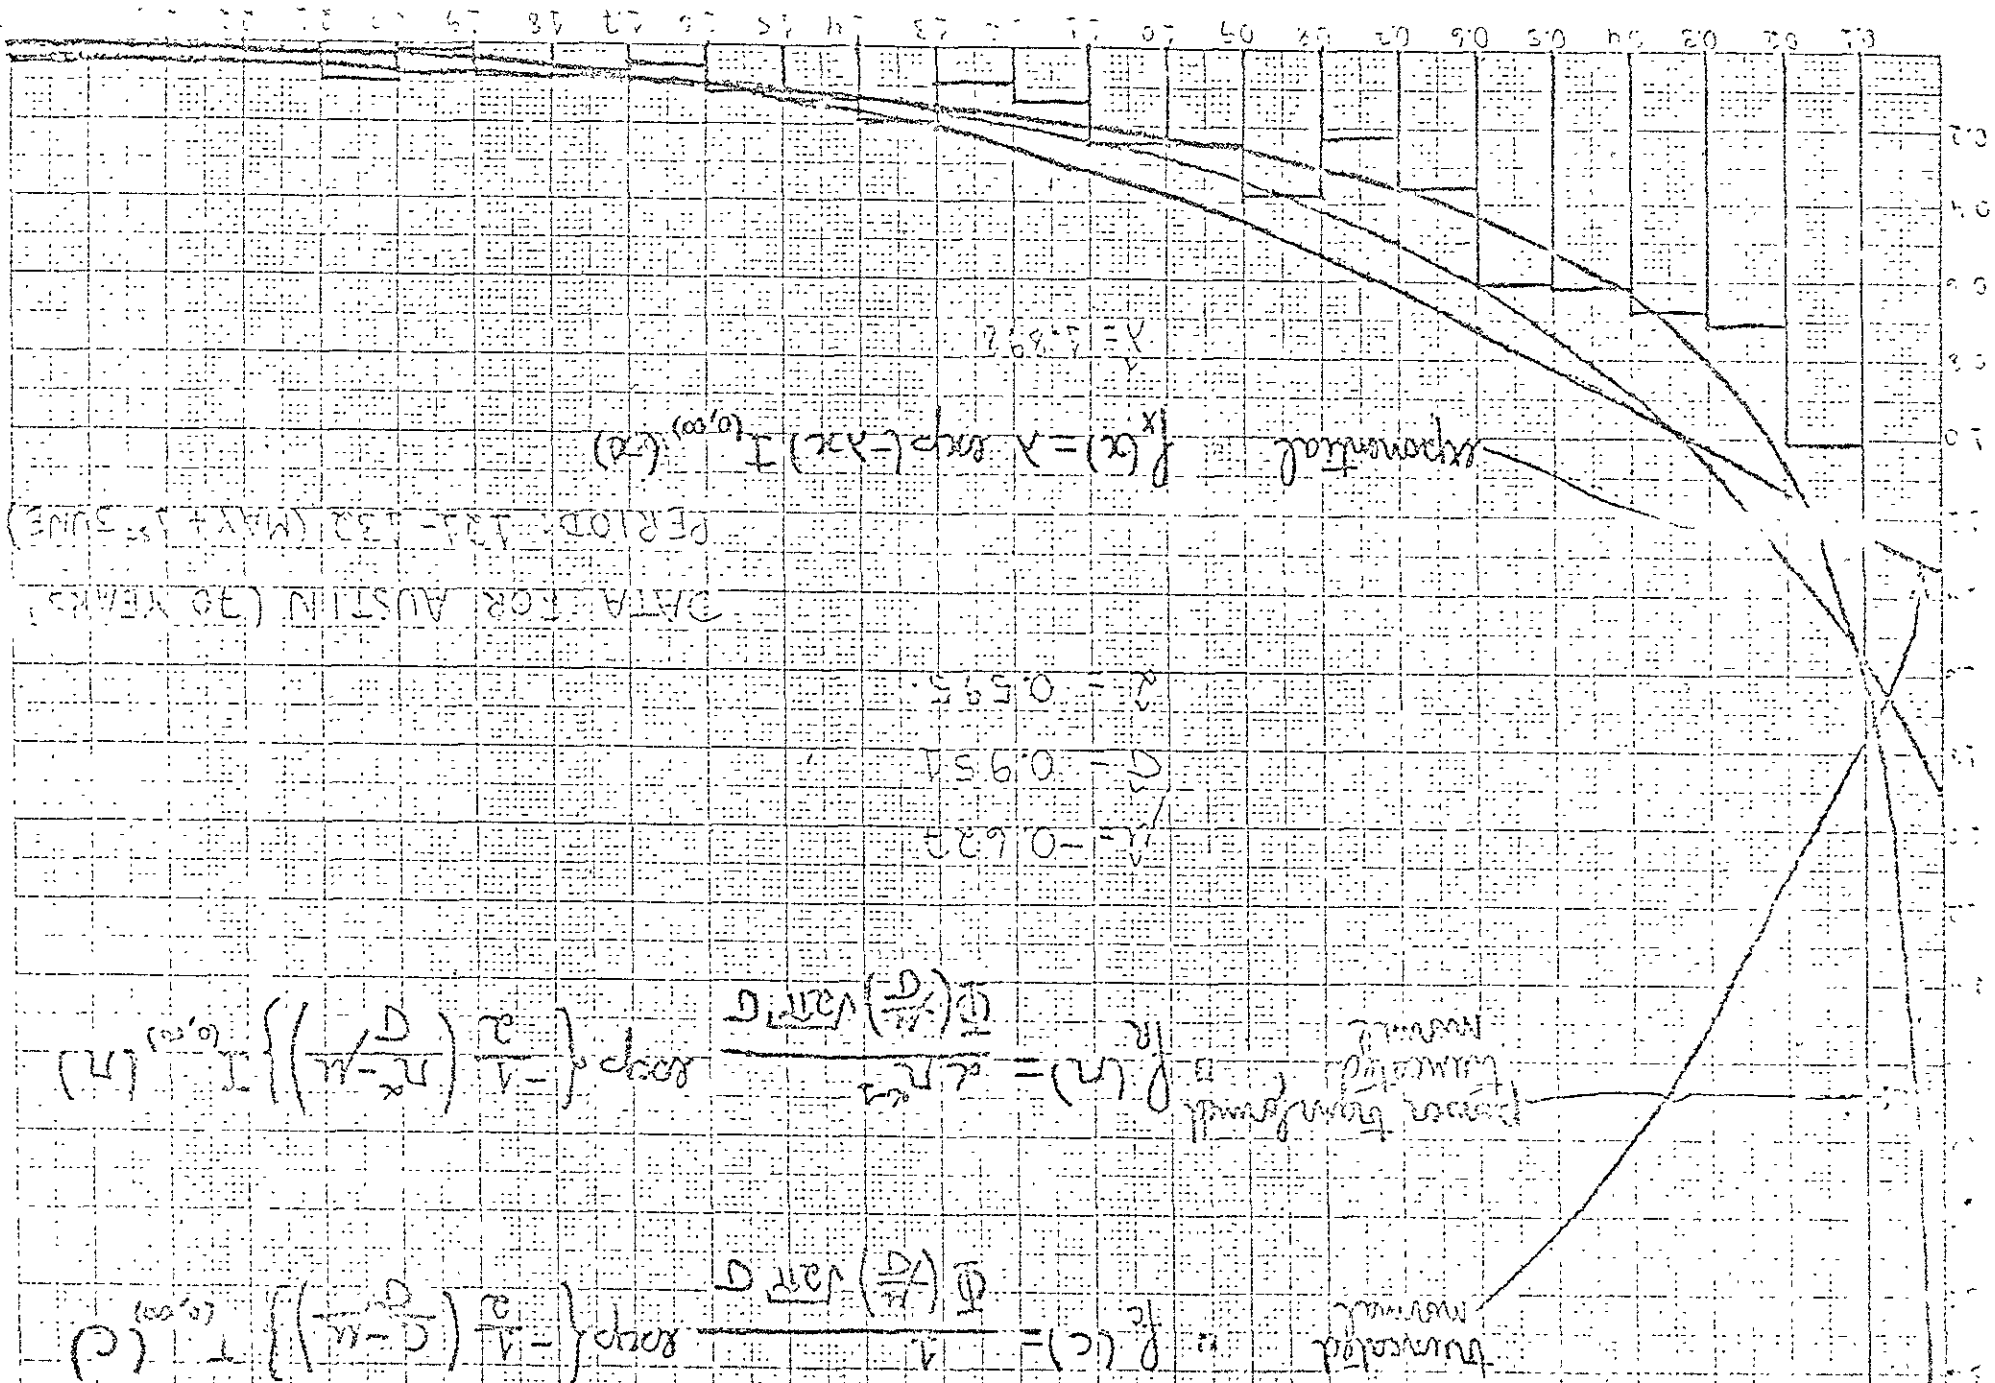 truncated
normal : f_c(c) = 1 / (Φ(μ/σ) √2π σ) exp{ -1/2 ( (c-μ)/σ ) } I_(0,∞) (c)
Power transformed
truncated
normal : f_R(r) = α r^α-1 / (Φ(μ/σ) √2π σ) exp{ -1/2 ( (r^α-μ)/σ ) } I_(0,∞) (r)
μ̂ = -0.627
σ̂ = 0.951
α̂ = 0.595
DATA FOR AUSTIN (70 YEARS)
PERIOD: 121-132 (MAY + 1st JUNE)
exponential f_x(x) = λ exp(-λx) I_(0,∞) (x)
λ̂ = 1.392
1.0
0.8
0.6
0.4
0.2
0.1 0.2 0.3 0.4 0.5 0.6 0.7 0.8 0.9 1.0 1.1 1.2 1.3 1.4 1.5 1.6 1.7 1.8 1.9